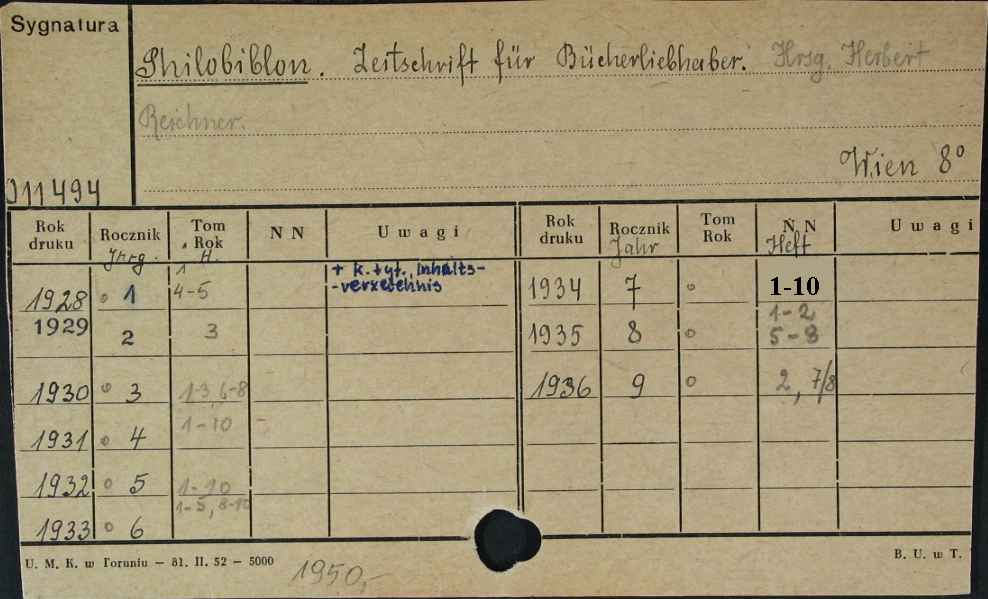 Sygnatura
Philobiblon. Zeitschrift für Bücherliebhaber. Hrsg. Herbert
Reichner.
Wien 8°
011494
Rok druku Rocznik Tom Rok N N Uwagi Rok druku Rocznik Tom Rok N N Uwagi
Jhrg. H. Jahr Heft
1928 ° 1 1 4-5 + k. tyt., Inhalts-
-verzeichnis
1929 2 3
1930 ° 3 1-3, 6-8
1931 ° 4 1-10
1932 ° 5 1-10
1933 ° 6 1-5, 8-10
1934 7 ° 1-10
1935 8 ° 1-2
5-8
1936 9 ° 2, 7/8
U. M. K. w Toruniu — 81. II. 52 — 5000
1950,-
B. U. w T.